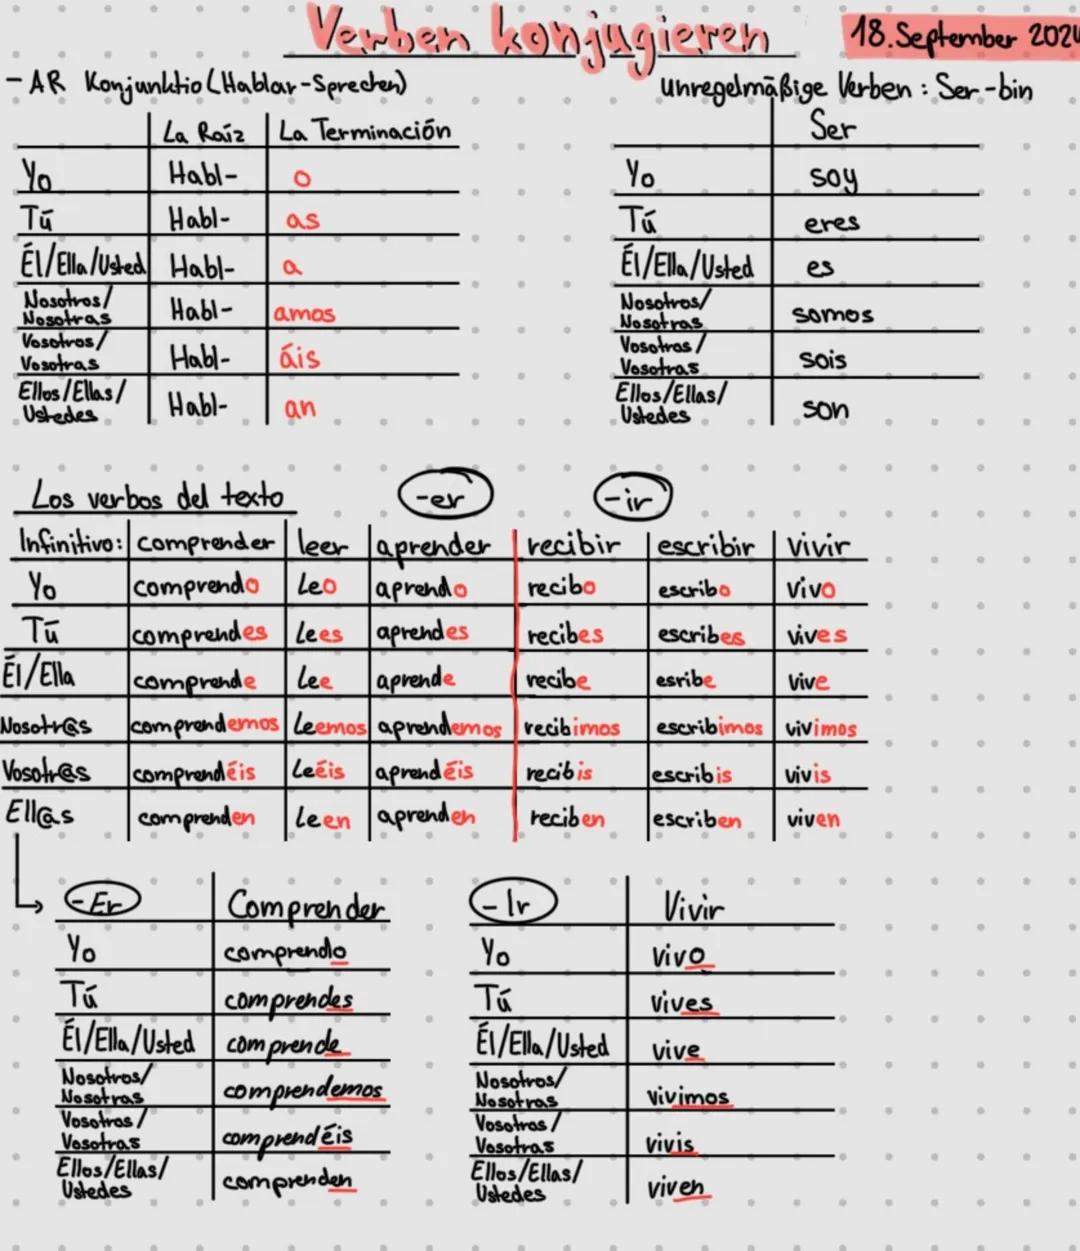 Verben konjugieren
18. September 2024
- AR Konjunktio (Hablar - Sprechen)
La Raíz La Terminación
Yo Habl- o
Tú Habl- as
Él/Ella/Usted Habl- a
Nosotros/
Nosotras Habl- amos
Vosotros/
Vosotras Habl- áis
Ellos/Ellas/
Ustedes Habl- an
Unregelmäßige Verben: Ser - bin
Ser
Yo soy
Tú eres
Él/Ella/Usted es
Nosotros/
Nosotras somos
Vosotros/
Vosotras sois
Ellos/Ellas/
Ustedes son
Los verbos del texto -er -ir
Infinitivo: comprender leer aprender recibir escribir vivir
Yo comprendo Leo aprendo recibo escribo vivo
Tú comprendes Lees aprendes recibes escribes vives
Él/Ella comprende Lee aprende recibe esribe vive
Nosotr@s comprendemos Leemos aprendemos recibimos escribimos vivimos
Vosotr@s comprendéis Leéis aprendéis recibis escribis vivis
Ell@s comprenden Leen aprenden reciben escriben viven
-Er Comprender
Yo comprendo
Tú comprendes
Él/Ella/Usted comprende
Nosotros/
Nosotras comprendemos
Vosotros/
Vosotras comprendéis
Ellos/Ellas/
Ustedes comprenden
-Ir Vivir
Yo vivo
Tú vives
Él/Ella/Usted vive
Nosotros/
Nosotras vivimos
Vosotros/
Vosotras vivis
Ellos/Ellas/
Ustedes viven